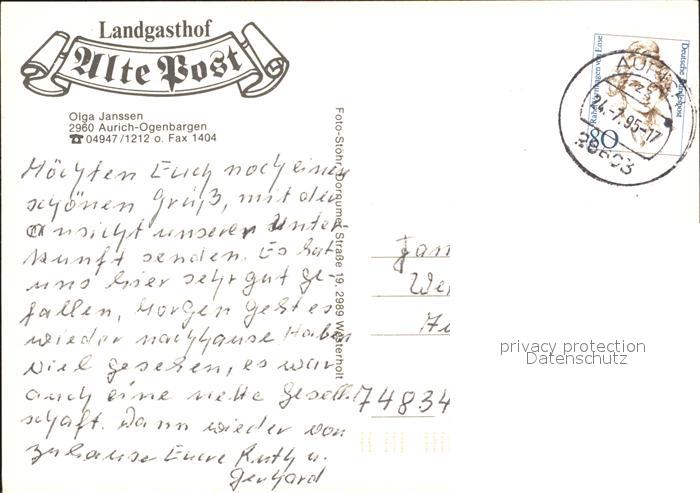 Landgasthof
Alte Post
Olga Janssen
2960 Aurich-Ogenbargen
☎ 04947/1212 o. Fax 1404
Möchten Euch noch einen
schönen Gruß, mit der
Ansicht unserer Unter
kunft senden. Es hat
uns hier sehr gut ge-
fallen, Morgen geht es
wieder nachhause Haben
viel gesehen, es war
auch eine nette Gesell-
schaft. Dann wieder von
zuhause Eure Ruth u.
Gerhard
Foto-Stohr, Dornumer Straße 19, 2989 Westerholt
Deutsche Bundespost
Rahel Varnhagen von Ense
80
AURICH
24.-7.95-17
26603
Jan
We
74834
privacy protection
Datenschutz